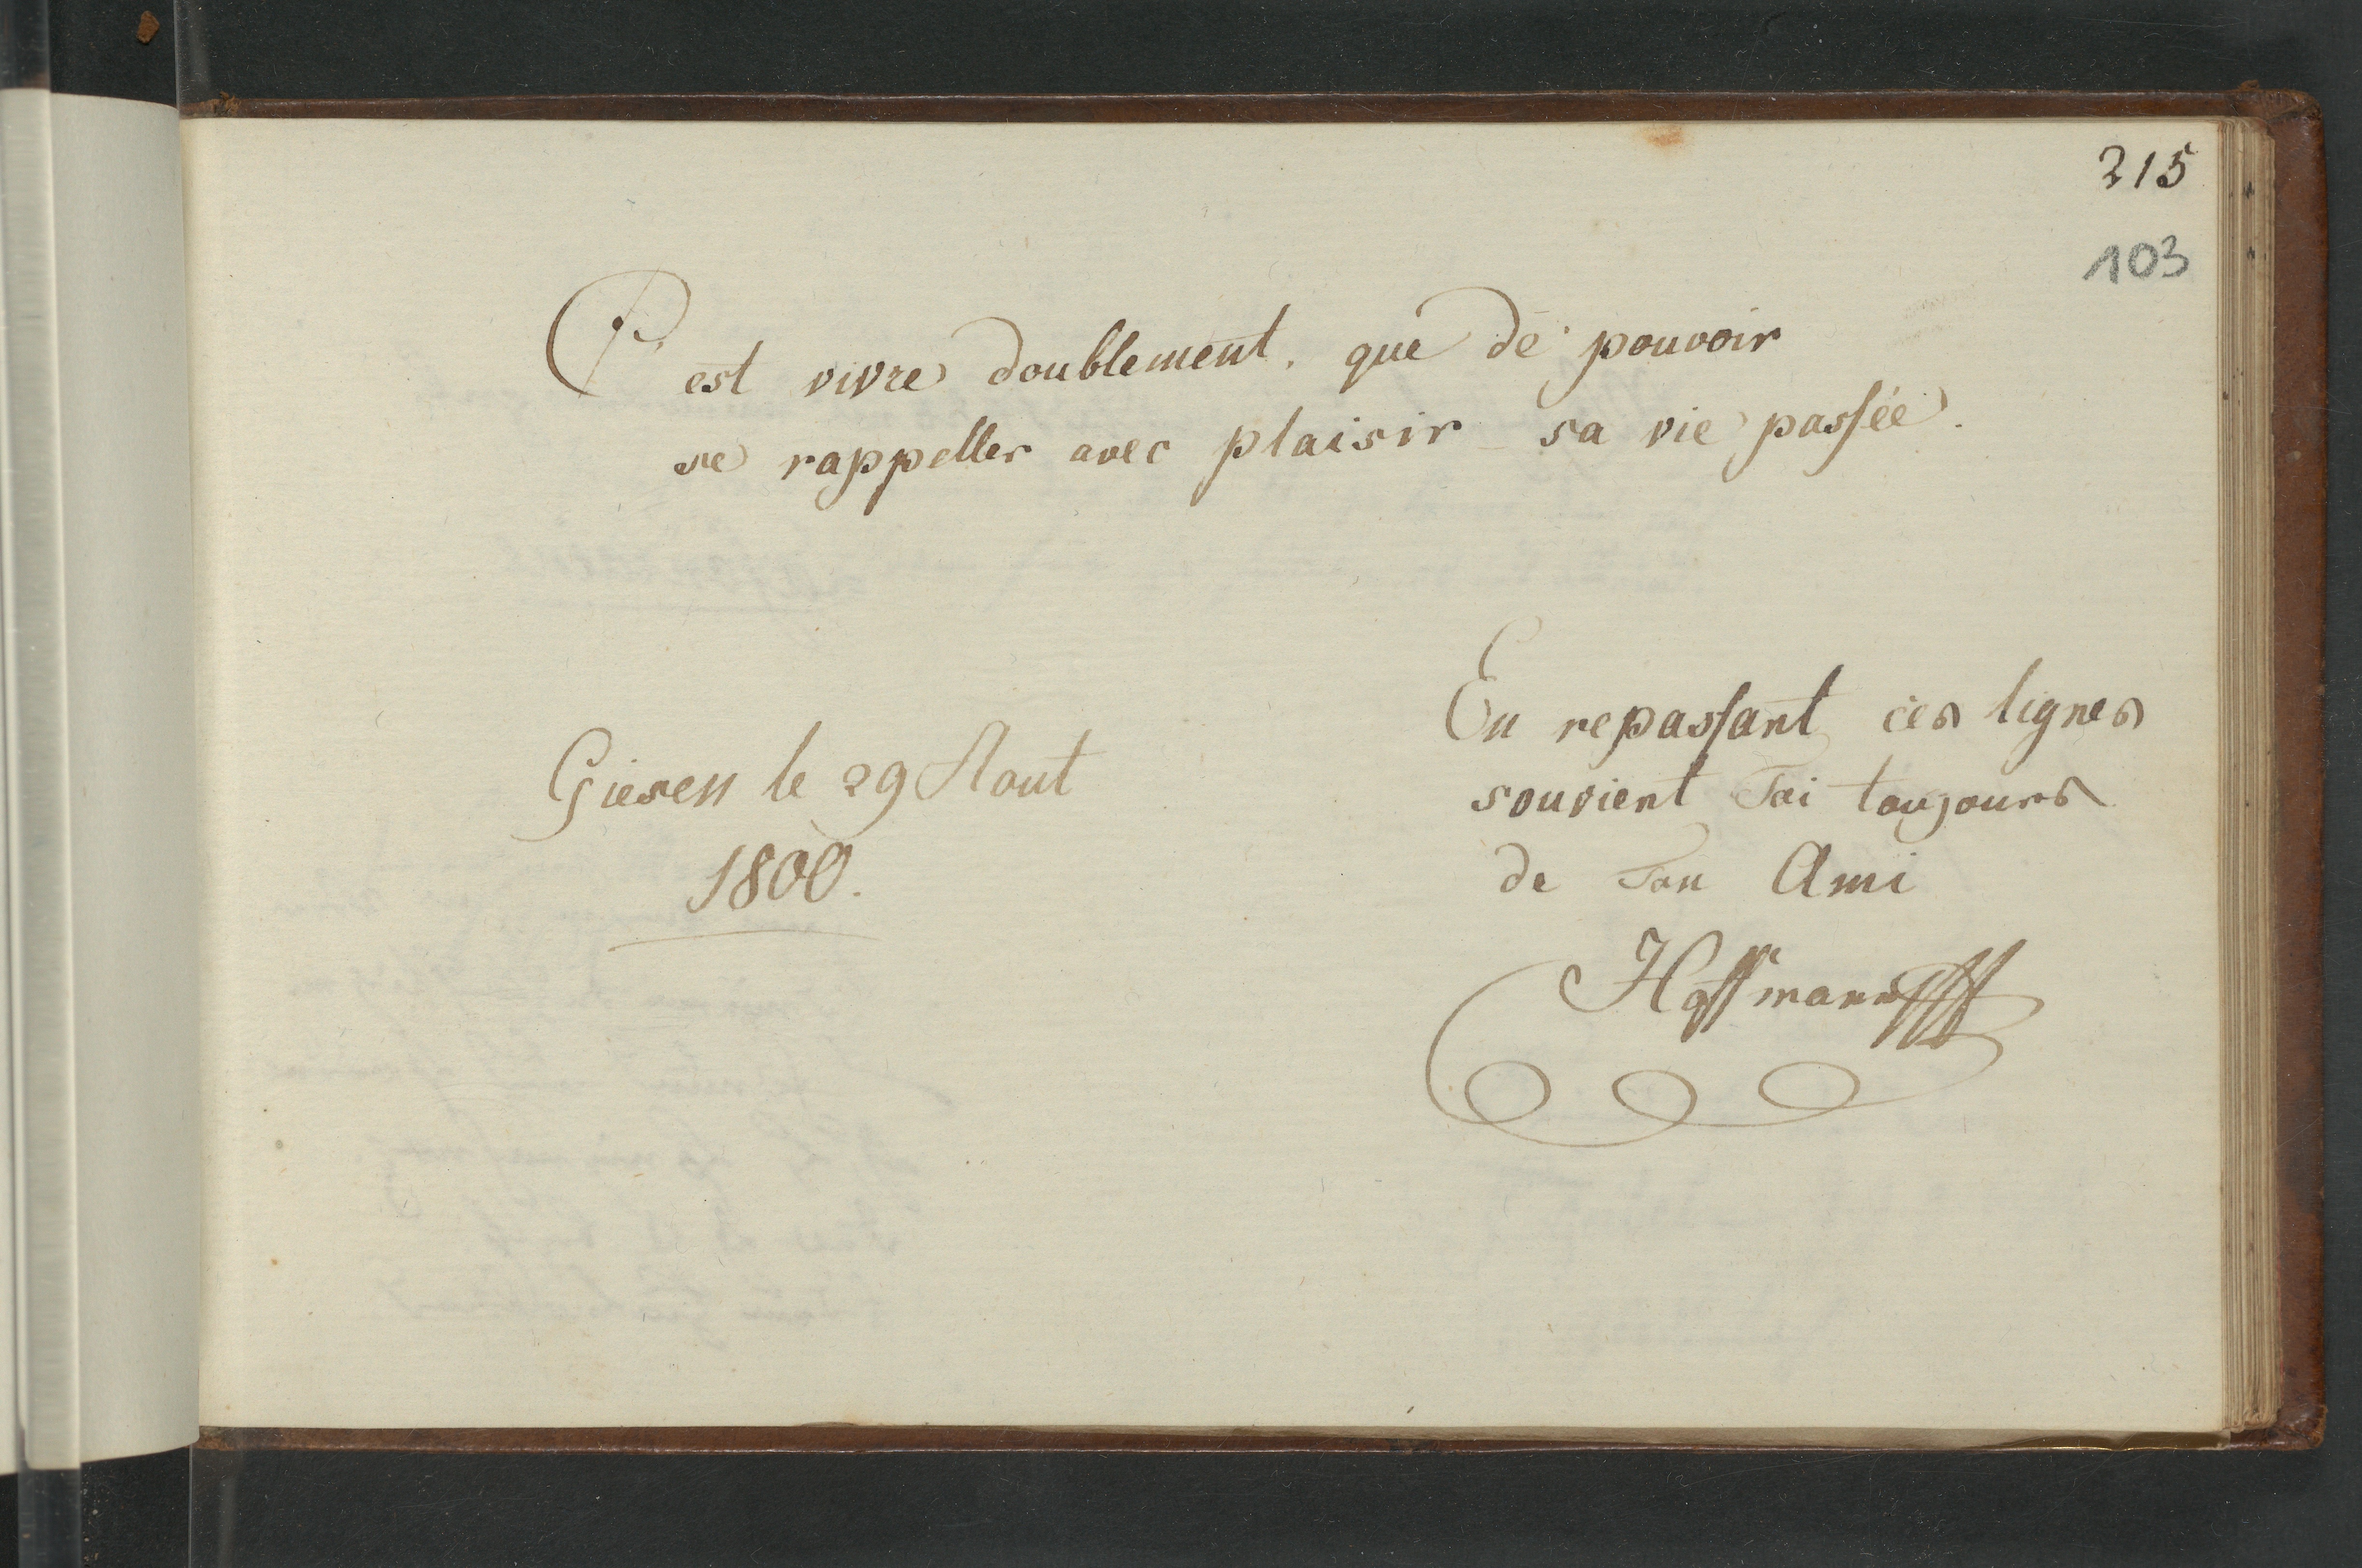 215
103
C'est vivre doublement, que de pouvoir
se rappeller avec plaisir sa vie passée.
Giesen le 29 Aout
1800.
En repassant ces lignes
souvient Toi toujours
de Ton Ami
Hoffmann